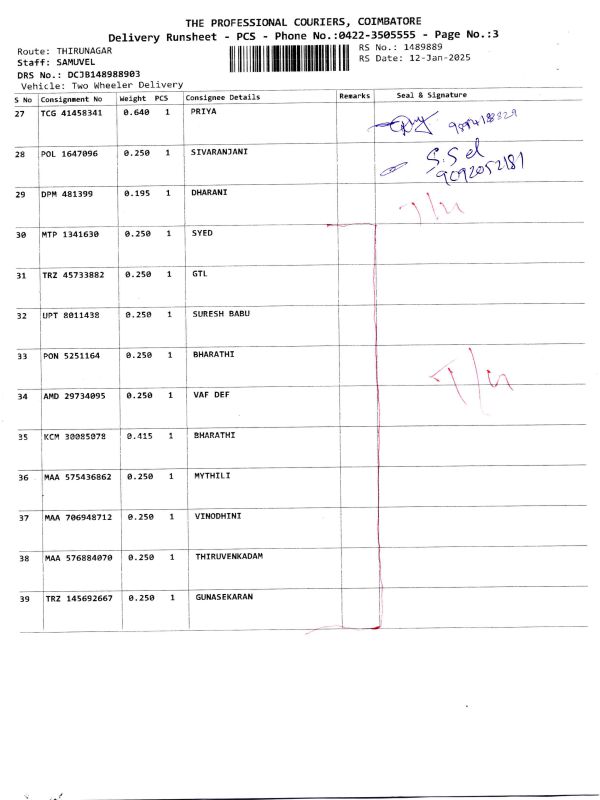 THE PROFESSIONAL COURIERS, COIMBATORE
Delivery Runsheet - PCS - Phone No.:0422-3505555 - Page No.:3
Route: THIRUNAGAR RS No.: 1489889
Staff: SAMUVEL RS Date: 12-Jan-2025
DRS No.: DCJB148988903
Vehicle: Two Wheeler Delivery
S No Consignment No Weight PCS Consignee Details Remarks Seal & Signature
27 TCG 41458341 0.640 1 PRIYA
28 POL 1647096 0.250 1 SIVARANJANI S.Sel
9092052181
29 DPM 481399 0.195 1 DHARANI
30 MTP 1341630 0.250 1 SYED
31 TRZ 45733882 0.250 1 GTL
32 UPT 8011438 0.250 1 SURESH BABU
33 PON 5251164 0.250 1 BHARATHI
34 AMD 29734095 0.250 1 VAF DEF
35 KCM 30085078 0.415 1 BHARATHI
36 MAA 575436862 0.250 1 MYTHILI
37 MAA 706948712 0.250 1 VINODHINI
38 MAA 576884070 0.250 1 THIRUVENKADAM
39 TRZ 145692667 0.250 1 GUNASEKARAN